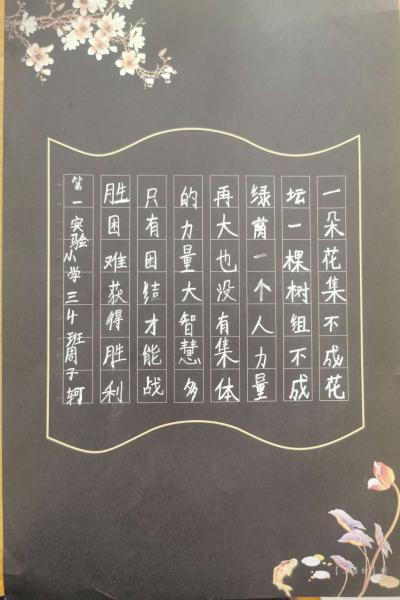 一朵花集不成花
坛一棵树组不成
绿荫一个人力量
再大也没有集体
的力量大智慧多
只有团结才能战
胜困难获得胜利
第一实验小学三4班周子轲